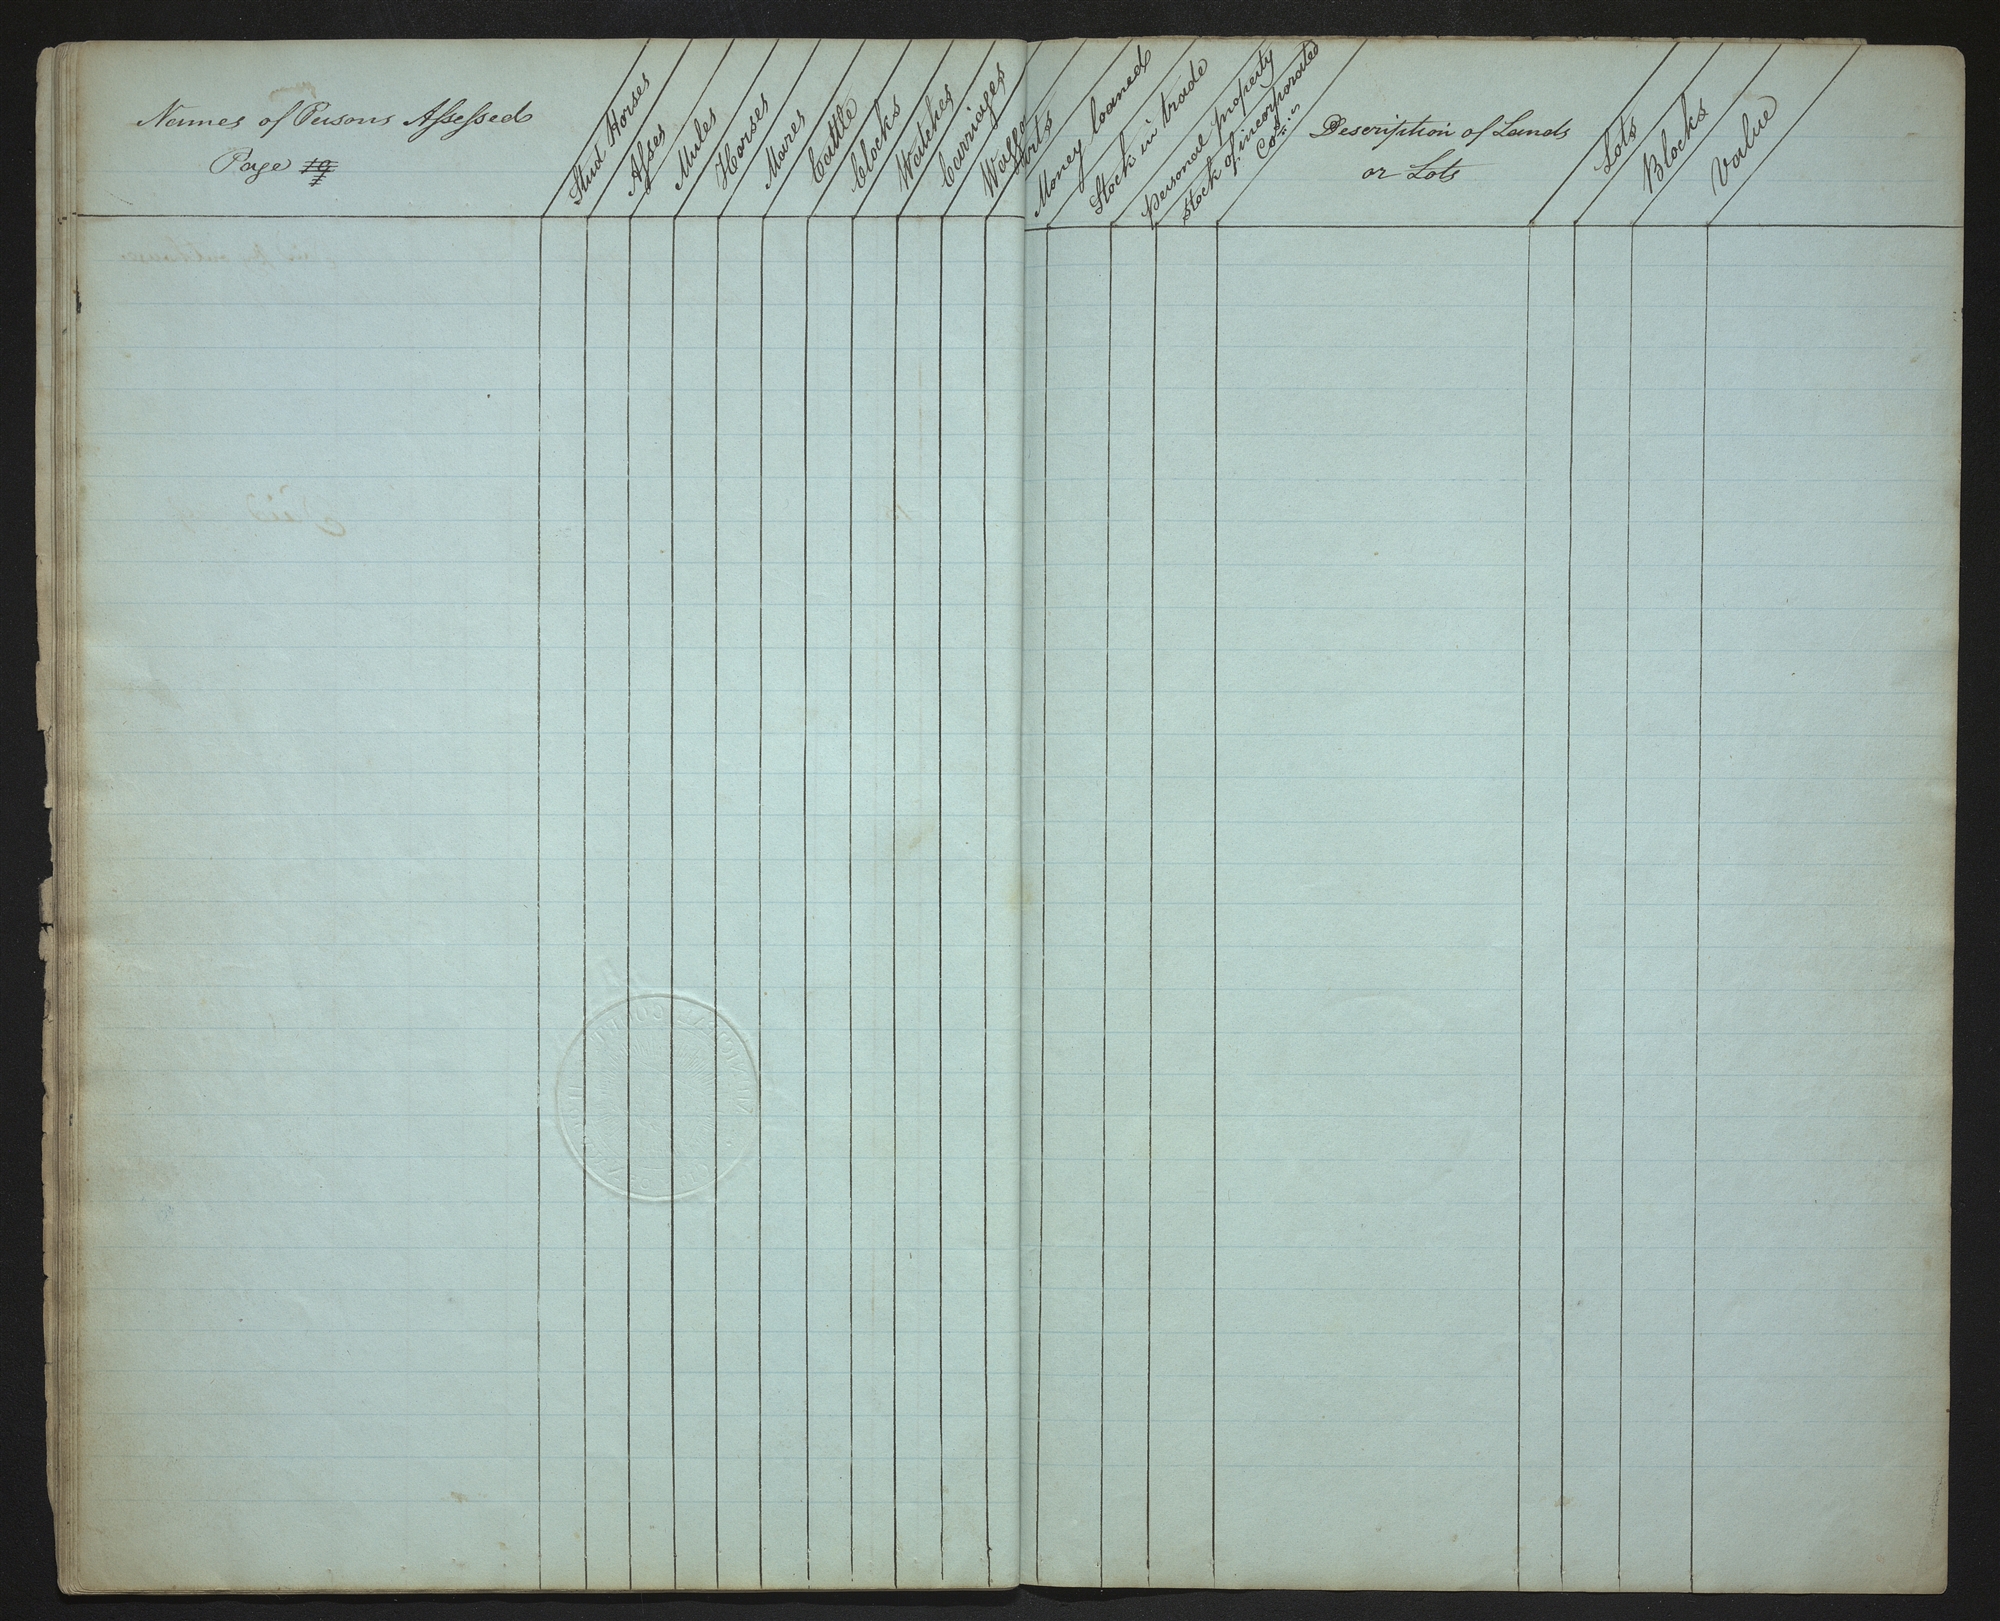 Names of Persons Assessed
Page 19
Stud Horses
Asses
Mules
Horses
Mares
Cattle
Clocks
Watches
Carriages
Money loaned
Stock in trade
Personal property
Stock of incorporated
Description of Lands
or Lots
Lots
Blocks
Value